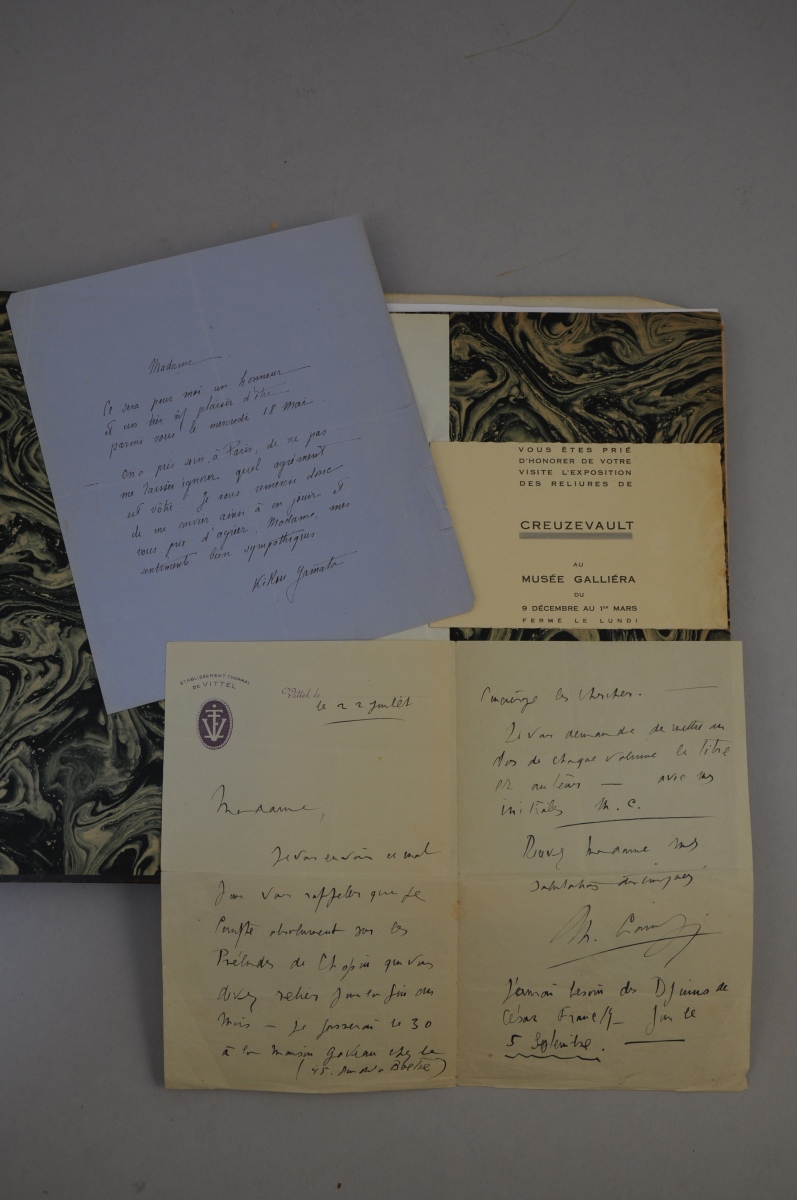 Madame
Ce sera pour moi un honneur
et un très vif plaisir d'être
parmi vous le mercredi 18 Mai.
On a pris soin, à Paris, de ne pas
me laisser ignorer quel agrément
est vôtre. Je vous remercie donc
de me convier ainsi à en jouir et
vous prie d'agréer, Madame, mes
sentiments bien sympathiques.
Kikou Yamata
VOUS ÊTES PRIÉ
D'HONORER DE VOTRE
VISITE L'EXPOSITION
DES RELIURES DE
CREUZEVAULT
AU
MUSÉE GALLIÉRA
DU
9 DÉCEMBRE AU 1ER MARS
FERMÉ LE LUNDI
ÉTABLISSEMENT THERMAL
DE VITTEL
Vittel le
le 22 juillet
Madame,
Je vous envoie ce mot
pour vous rappeler que je
compte absolument sur les
Préludes de Chopin que vous
devez relier pour la fin du
mois — Je passerai le 30
à la maison Gaveau chez le
(45. rue de la Boétie)
concierge les chercher.
Je vous demande de mettre au
dos de chaque volume le titre
et auteur — avec mes
initiales M. C.
Recevez Madame mes
salutations distinguées
M.
J'aurai besoin des Djinns de
César Franck pour le
5 Septembre.